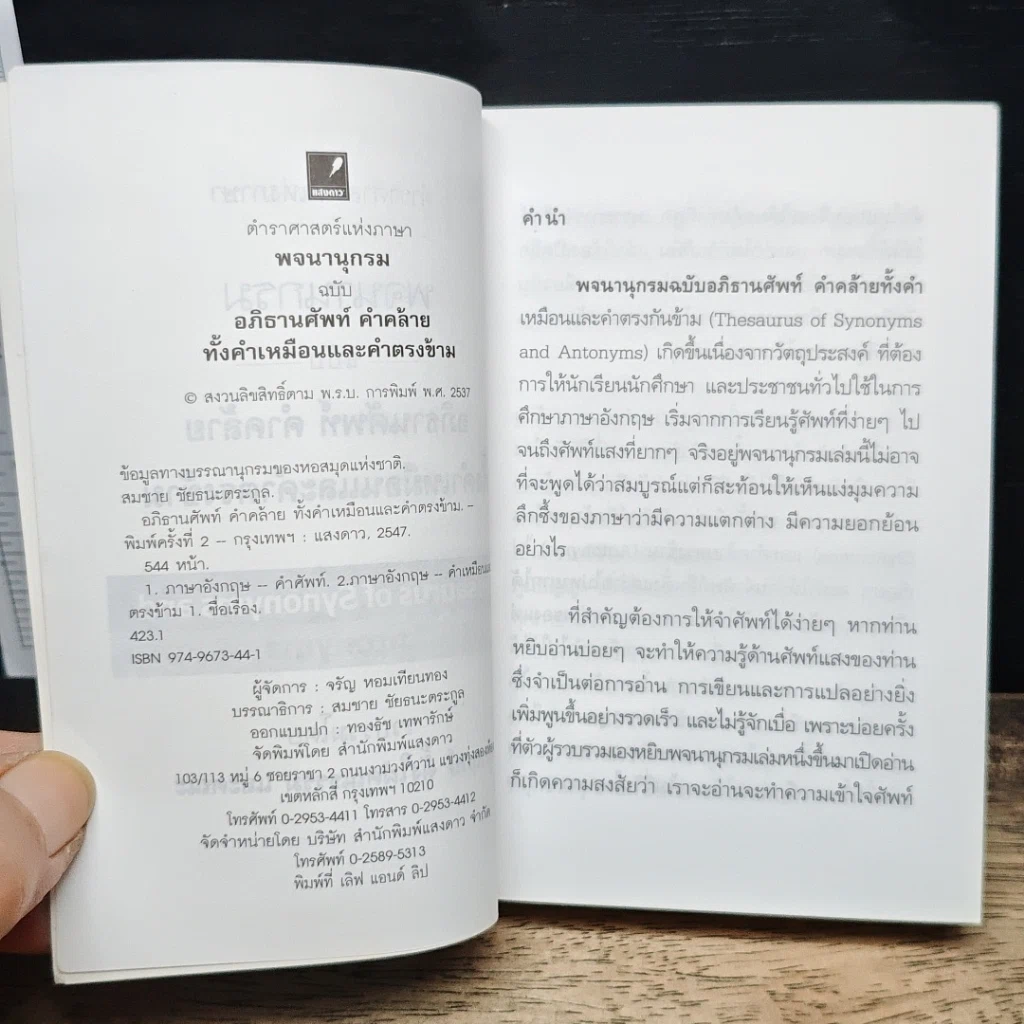 แสงดาว
ตำราศาสตร์แห่งภาษา
พจนานุกรม
ฉบับ
อภิธานศัพท์ คำคล้าย
ทั้งคำเหมือนและคำตรงข้าม
© สงวนลิขสิทธิ์ตาม พ.ร.บ. การพิมพ์ พ.ศ. 2537
ข้อมูลทางบรรณานุกรมของหอสมุดแห่งชาติ.
สมชาย ชัยธนะตระกูล.
อภิธานศัพท์ คำคล้าย ทั้งคำเหมือนและคำตรงข้าม. –
พิมพ์ครั้งที่ 2 -- กรุงเทพฯ : แสงดาว, 2547.
544 หน้า.
1. ภาษาอังกฤษ -- คำศัพท์. 2.ภาษาอังกฤษ -- คำเหมือนและ
ตรงข้าม 1. ชื่อเรื่อง.
423.1
ISBN 974-9673-44-1
ผู้จัดการ : จรัญ หอมเทียนทอง
บรรณาธิการ : สมชาย ชัยธนะตระกูล
ออกแบบปก : ทองธัช เทพารักษ์
จัดพิมพ์โดย สำนักพิมพ์แสงดาว
103/113 หมู่ 6 ซอยราชา 2 ถนนงามวงศ์วาน แขวงทุ่งสองห้อง
เขตหลักสี่ กรุงเทพฯ 10210
โทรศัพท์ 0-2953-4411 โทรสาร 0-2953-4412
จัดจำหน่ายโดย บริษัท สำนักพิมพ์แสงดาว จำกัด
โทรศัพท์ 0-2589-5313
พิมพ์ที่ เลิฟ แอนด์ ลิป
คำนำ
พจนานุกรมฉบับอภิธานศัพท์ คำคล้ายทั้งคำ
เหมือนและคำตรงกันข้าม (Thesaurus of Synonyms
and Antonyms) เกิดขึ้นเนื่องจากวัตถุประสงค์ ที่ต้อง
การให้นักเรียนนักศึกษา และประชาชนทั่วไปใช้ในการ
ศึกษาภาษาอังกฤษ เริ่มจากการเรียนรู้ศัพท์ที่ง่ายๆ ไป
จนถึงศัพท์แสงที่ยากๆ จริงอยู่พจนานุกรมเล่มนี้ไม่อาจ
ที่จะพูดได้ว่าสมบูรณ์แต่ก็สะท้อนให้เห็นแง่มุมความ
ลึกซึ้งของภาษาว่ามีความแตกต่าง มีความยอกย้อน
อย่างไร
ที่สำคัญต้องการให้จำศัพท์ได้ง่ายๆ หากท่าน
หยิบอ่านบ่อยๆ จะทำให้ความรู้ด้านศัพท์แสงของท่าน
ซึ่งจำเป็นต่อการอ่าน การเขียนและการแปลอย่างยิ่ง
เพิ่มพูนขึ้นอย่างรวดเร็ว และไม่รู้จักเบื่อ เพราะบ่อยครั้ง
ที่ตัวผู้รวบรวมเองหยิบพจนานุกรมเล่มหนึ่งขึ้นมาเปิดอ่าน
ก็เกิดความสงสัยว่า เราจะอ่านจะทำความเข้าใจศัพท์